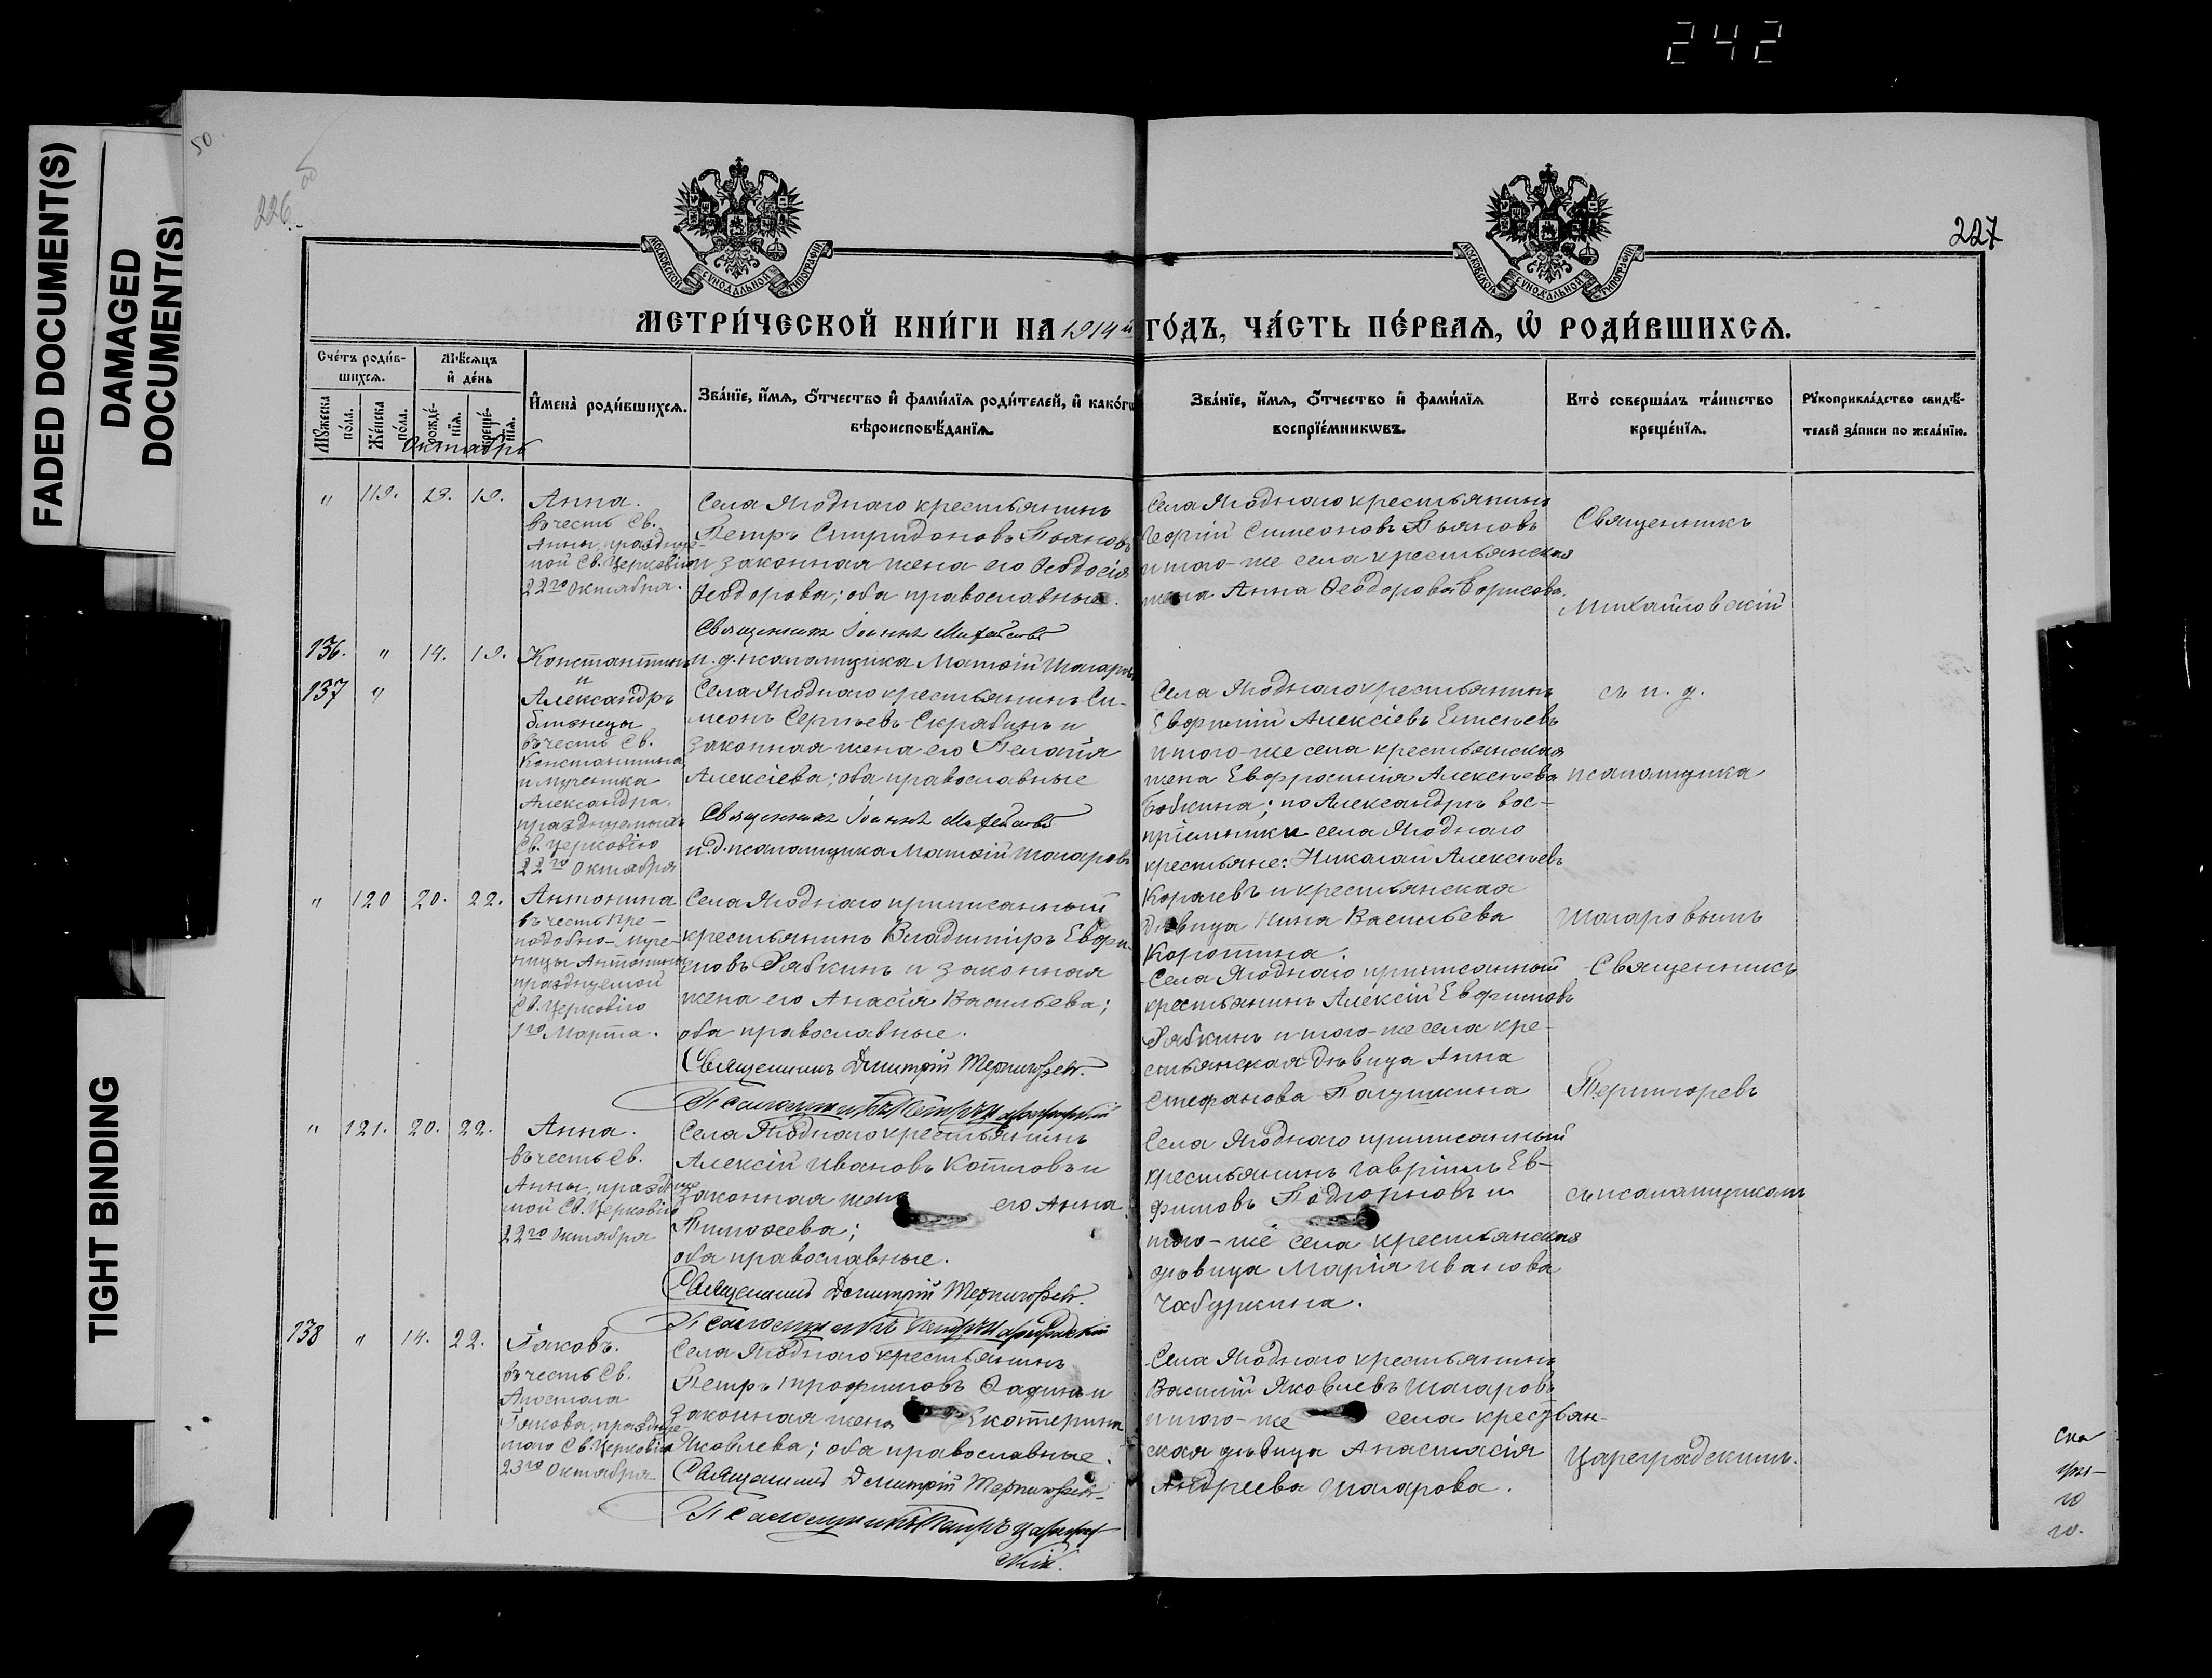 242
FADED DOCUMENT(S)
DAMAGED
DOCUMENT(S)
TIGHT BINDING
50
226
227
МОСКОВСКОЙ СѴНОДАЛЬНОЙ ТИПОГРАФІИ
МОСКОВСКОЙ СѴНОДАЛЬНОЙ ТИПОГРАФІИ
МЕТРИ́ЧЕСКОЙ КНИ́ГИ НА 1914й ГО́ДЪ, ЧА́СТЬ ПЕ́РВАѦ, Ѡ҆ РОДИ́ВШИХСѦ.
Сче́тъ роди́в-
шихсѧ.
Мѣ́сѧцъ
и҆ де́нь
Мꙋ́жеска
по́ла.
Же́нска
по́ла.
рожде́-
нїѧ.
креще́-
нїѧ.
Октябрь
И҆мена̀ роди́вшихсѧ.
Зва́нїе, и҆́мѧ, ѻ҆́тчество и҆ фами́лїѧ роди́телей, и҆ како́гѡ
вѣроисповѣ́данїѧ.
Зва́нїе, и҆́мѧ, ѻ҆́тчество и҆ фами́лїѧ
воспрїе́мникѡвъ.
Кто̀ соверша́лъ та́инство
креще́нїѧ.
Рꙋкоприкла́дство свидѣ́-
телей за́писи по жела́нїю.
" 119. 19.
Анна.
въ честь Св.
Анны, празднуе-
мой Св. Церковію
22го Октября.
Села Ягоднаго крестьянинъ
Петръ Спиридоновъ Пьяновъ
и законная жена его Ѳеодосія
Ѳеодорова; оба православные.
Священникъ Іоаннъ
Села Ягоднаго крестьянинъ
Георгій Симеоновъ Пьяновъ
и того-же села крестьянская
жена Анна Ѳеодорова Борисова.
Священникъ
Михайловскій
136. " 14. 19.
Константинъ
и. д. псаломщика Матѳій Шагаровъ
137 "
и
Александръ
близнецы
въ честь Св.
Константина
и мученика
Александра,
празднуемыхъ
Св. Церковію
22го Октября
Села Ягоднаго крестьянинъ Си-
меонъ Сергѣевъ Скрябинъ и
законная жена его Пелагія
Алексіева; оба православные
Священникъ Іоаннъ
и. д. псаломщика Матѳій Шагаровъ
Села Ягоднаго крестьянинъ
Евфимій Алексіевъ
и того-же села крестьянская
жена Евфросинія Алексѣева
Бобкина; по Александрѣ вос-
пріемники села Ягоднаго
крестьяне: Николай Алексѣевъ
и крестьянская
дѣвица Нина Васильева
съ и. д.
псаломщика
Шагаровымъ
" 120 20. 22.
Антонина
въ честь Пре-
подобно-муче-
ницы Антонины
празднуемой
Св. Церковію
1го Марта.
Села Ягоднаго приписанный
крестьянинъ Владиміръ Евфи-
мовъ Рябкинъ и законная
жена его Анасія Васильева;
оба православные.
Священникъ Димитрій Терпигоревъ.
Псаломщикъ Петръ Цареградскій
Села Ягоднаго приписанный
крестьянинъ Алексій Евфимовъ
Рябкинъ и того-же села кре-
стьянская дѣвица Анна
Стефанова
Священникъ
Терпигоревъ
" 121. 20. 22.
Анна.
въ честь Св.
Анны, празднуе-
мой Св. Церковію
22го Октября
Села Ягоднаго крестьянинъ
Алексій Ивановъ Котловъ и
законная жена его Анна
Тимоѳеева;
оба православные.
Священникъ Димитрій Терпигоревъ.
Псаломщикъ Петръ Цареградскій
Села Ягоднаго приписанный
крестьянинъ Гавріилъ Ев-
фимовъ Подгорновъ и
того-же села крестьянская
дѣвица Марія Иванова
Чабуркина.
съ псаломщикомъ
138 " 14. 22.
Іаковъ.
въ честь Св.
Апостола
Іакова, праздnуе-
маго Св. Церковію
23го Октября
Села Ягоднаго крестьянинъ
Петръ Трофимовъ и
законная жена Екатерина
Яковлева; оба православные.
Священникъ Димитрій Терпигоревъ
Псаломщикъ Петръ Цареград-
скій.
Села Ягоднаго крестьянинъ
Василій Яковлевъ Шагаровъ
и того-же села крестьян-
ская дѣвица Анастасія
Андреева Шагарова.
Цареградскимъ.